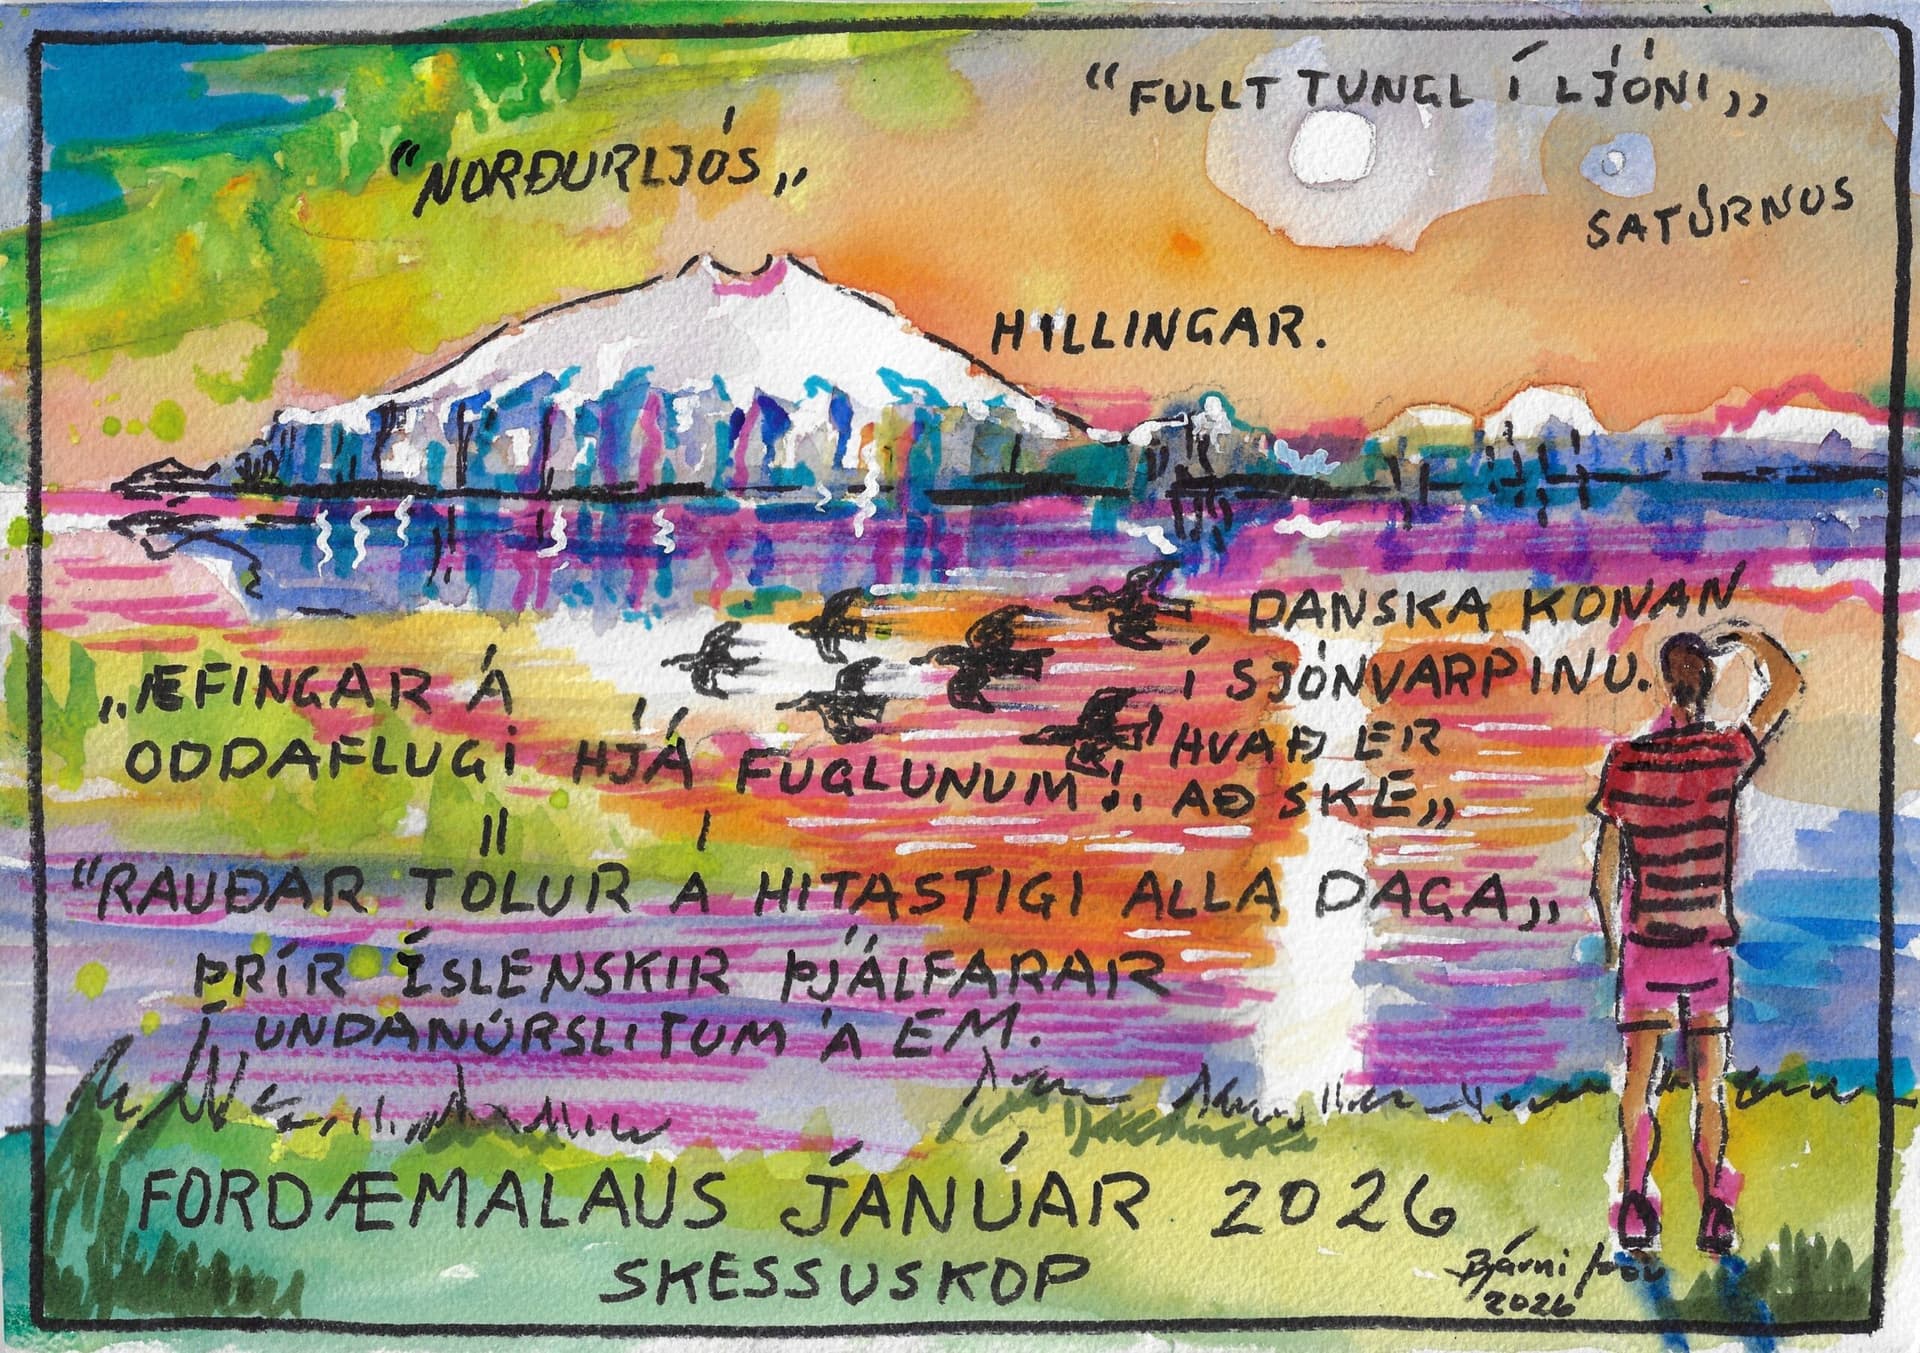 “FULLT TUNGL Í LJÓNI„
“NORÐURLJÓS„
SATÚRNUS
HILLINGAR.
DANSKA KONAN
Í SJÓNVARPINU.
HVAÐ ER
AÐ SKE„
„ÆFINGAR Á
ODDAFLUGI HJÁ FUGLUNUM!.
“RAUÐAR TÖLUR Á HITASTIGI ALLA DAGA„
ÞRÍR ÍSLENSKIR ÞJÁLFARAR
Í UNDANÚRSLITUM Á EM.
FORDÆMALAUS JANÚAR 2026
SKESSUSKOP
Bjarni
2026